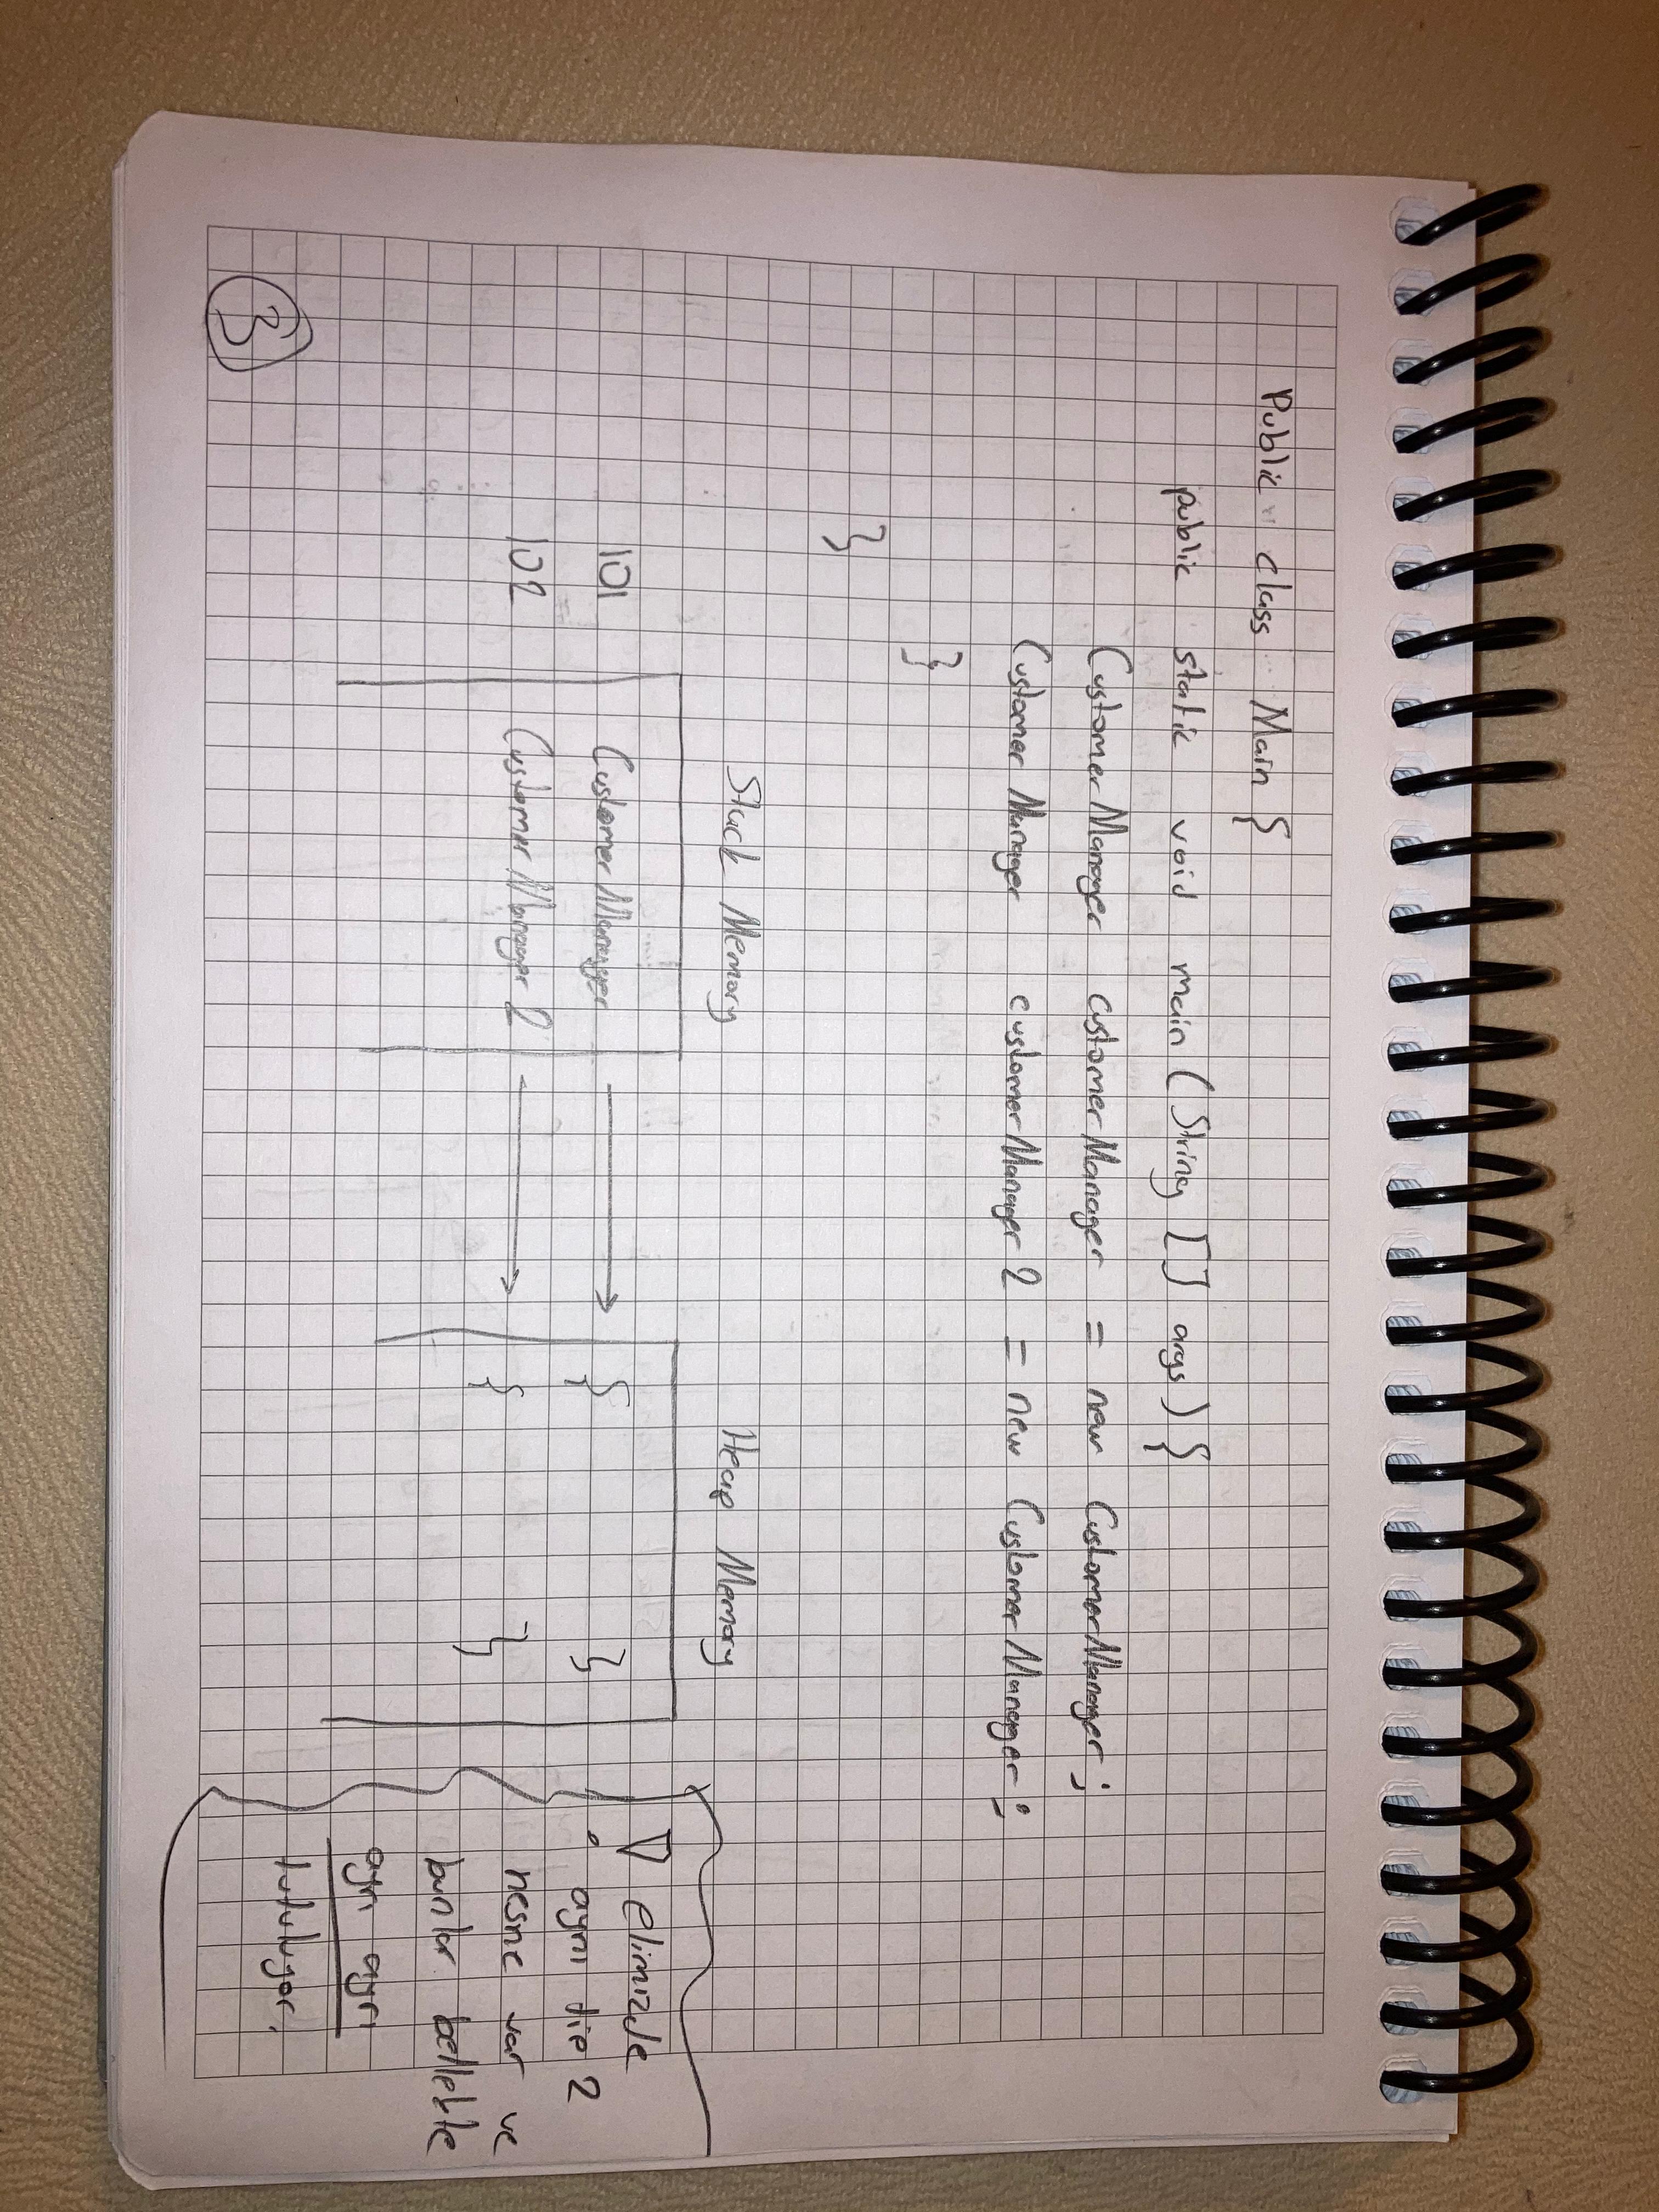 Public class Main {
public static void main (String [] args) {
CustomerManager customerManager = new CustomerManager;
Customer Manager customerManager 2 = new CustomerManager;
}
}
Stack Memory
Heap Memory
101 Customer Manager { }
102 Customer Manager 2 { }
! elimizde
aynı tip 2
nesne var ve
bunlar bellekte
ayrı ayrı
tutuluyor.
3